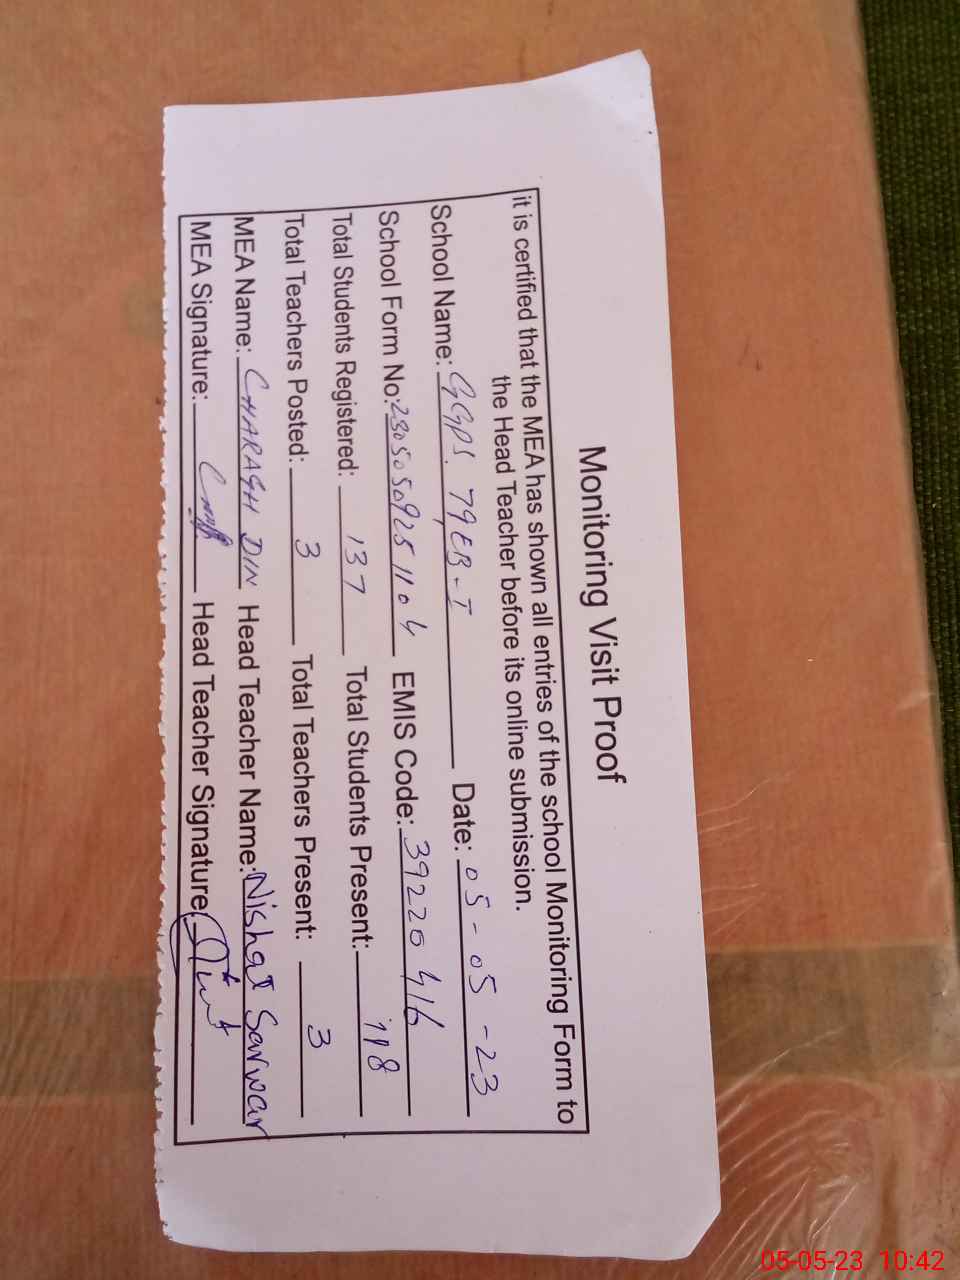 Monitoring Visit Proof
it is certified that the MEA has shown all entries of the school Monitoring Form to
the Head Teacher before its online submission.
School Name: GGPS. 79EB-I Date: 05-05-23
School Form No: 23050509251104 EMIS Code: 39220416
Total Students Registered: 137 Total Students Present: 118
Total Teachers Posted: 3 Total Teachers Present: 3
MEA Name: CHARAGH DIN Head Teacher Name: Nishat Sarwar
MEA Signature: Head Teacher Signature:
05-05-23 10:42